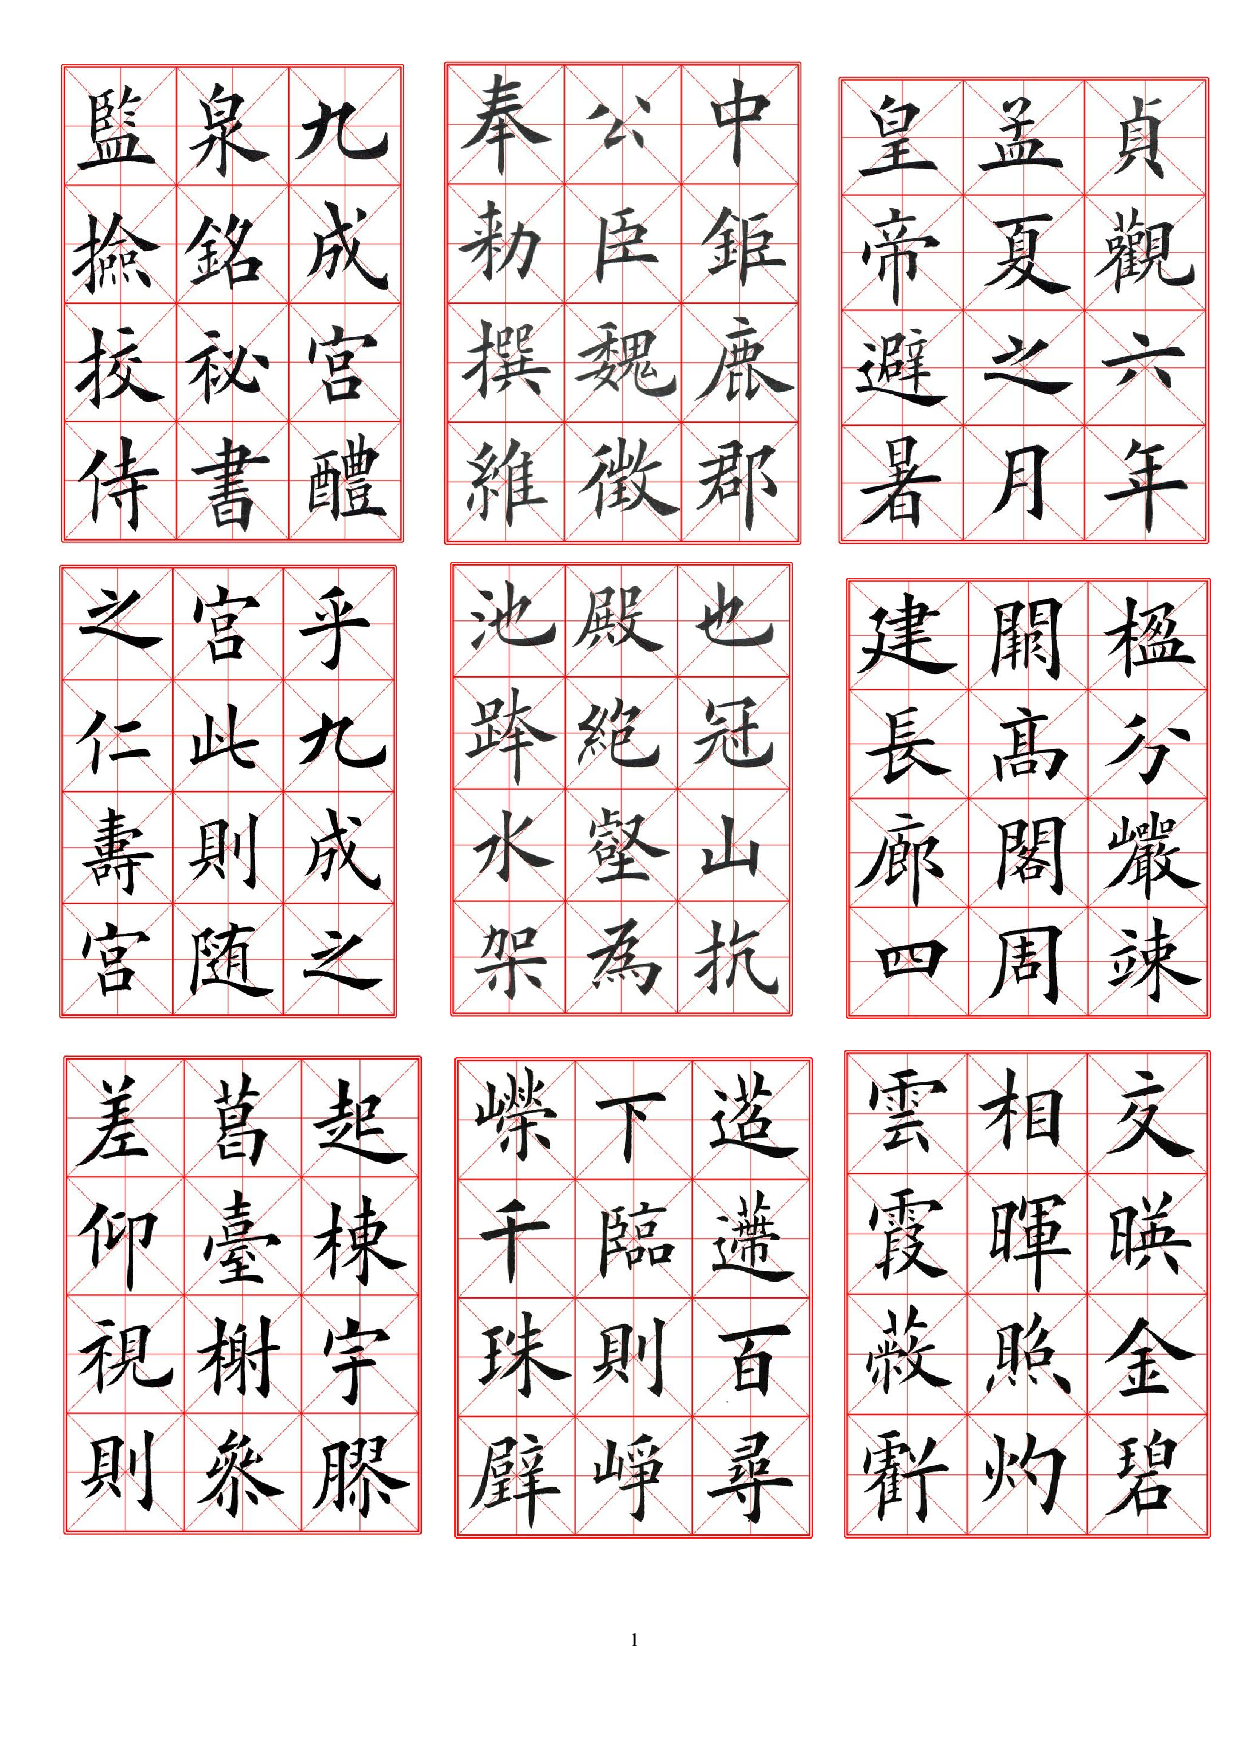 九成宮醴
泉銘祕書
監撿挍侍
中鉅鹿郡
公臣魏徵
奉勑撰維
貞觀六年
孟夏之月
皇帝避暑
乎九成之
宮此則随
之仁壽宮
也冠山抗
殿絕壑為
池跨水架
楹分巖竦
闕髙閣周
建長廊四
起棟宇膠
葛臺榭參
差仰視則
迢遰百尋
下臨則崢
嶸千珠璧
交暎金碧
相暉照灼
雲霞蔽虧
1